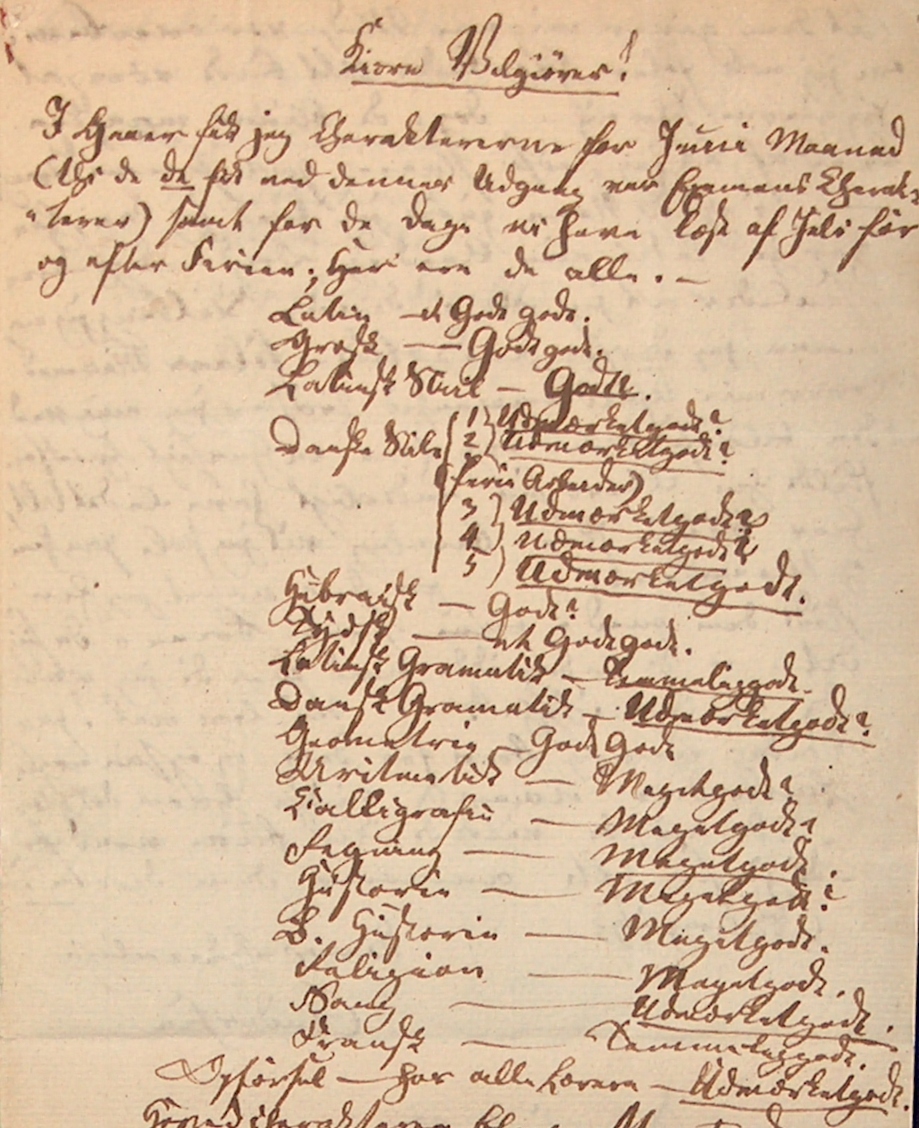 Kiære Velgiörer!
I Gaaer fik jeg Charaktererne for Juni Maaned
(thi de de fik ved dennes Udgang var Examens Charak-
terer) samt for de Dage vi have læst af Juli før
og efter Ferien; her ere de alle. —
Latin — et Godt godt.
Græsk — Godt godt.
Latinsk Stiil — Godt.
Danske Stile 1) Udmærketgodt?
2) Udmærketgodt?
(ferie Arbeider)
3) Udmærketgodt?
4) Udmærketgodt?
5) Udmærketgodt.
Hebraisk — Godt?
Tydsk — et Godt godt.
Latinsk Gramatik — Temmeliggodt.
Dansk Gramatik — Udmærketgodt?
Geometrie — Godt Godt
Aritmetik — Megetgodt?
Calligrafie — Megetgodt?
Tegning — Megetgodt.
Historie — Megetgodt?
B. Historie — Megetgodt.
Religion — Megetgodt.
Sang — Udmærketgodt.
Fransk — Temmeliggodt.
Opførsel — har alle Lærere — Udmærketgodt.